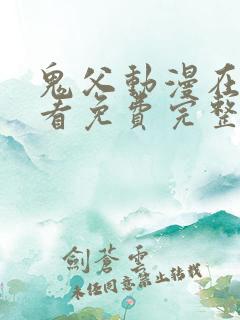 鬼父動漫在
者免費完整
劍蒼雲
未經同意禁止轉載